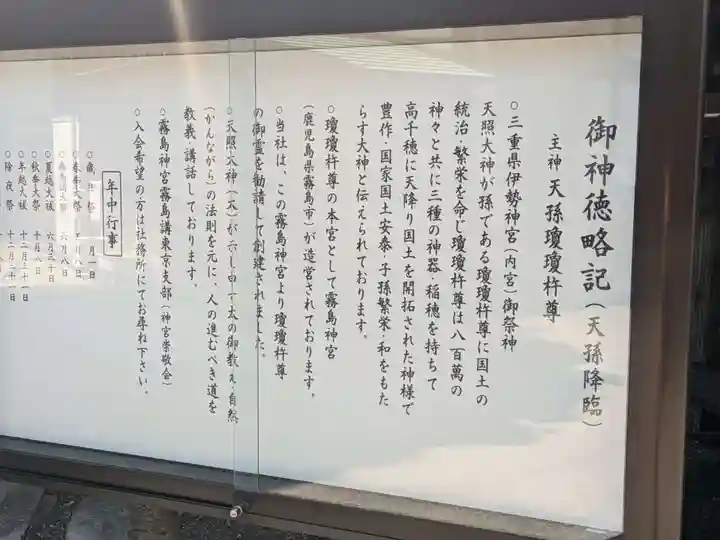 御神徳略記(天孫降臨)
主神 天孫瓊瓊杵尊
○三重県伊勢神宮(内宮)御祭神
天照大神が孫である瓊瓊杵尊に国土の
統治・繁栄を命じ瓊瓊杵尊は八百萬の
神々と共に三種の神器・稲穂を持ちて
高千穂に天降り国土を開拓された神様で
豊作・国家国土安泰・子孫繁栄・和をもた
らす大神と伝えられております。
○瓊瓊杵尊の本宮として霧島神宮
(鹿児島県霧島市)が造営されております。
○当社は、この霧島神宮より瓊瓊杵尊
の御霊を勧請して創建されました。
○天照大神(天)が示し の御教え・自然
(かんながら)の法則を元に、人の進むべき道を
教義・講話しております。
○霧島神宮霧島講東京支部(神宮崇敬会)
○入会希望の方は社務所にてお尋ね下さい。
年中行事
歳旦祭 一月一日
春季大祭 月八日
大祭 六月八日
夏越大祓 六月三十日
秋季大祭 十月八日
年越大祓 十二月三十一日
除夜祭 十二月三十一日